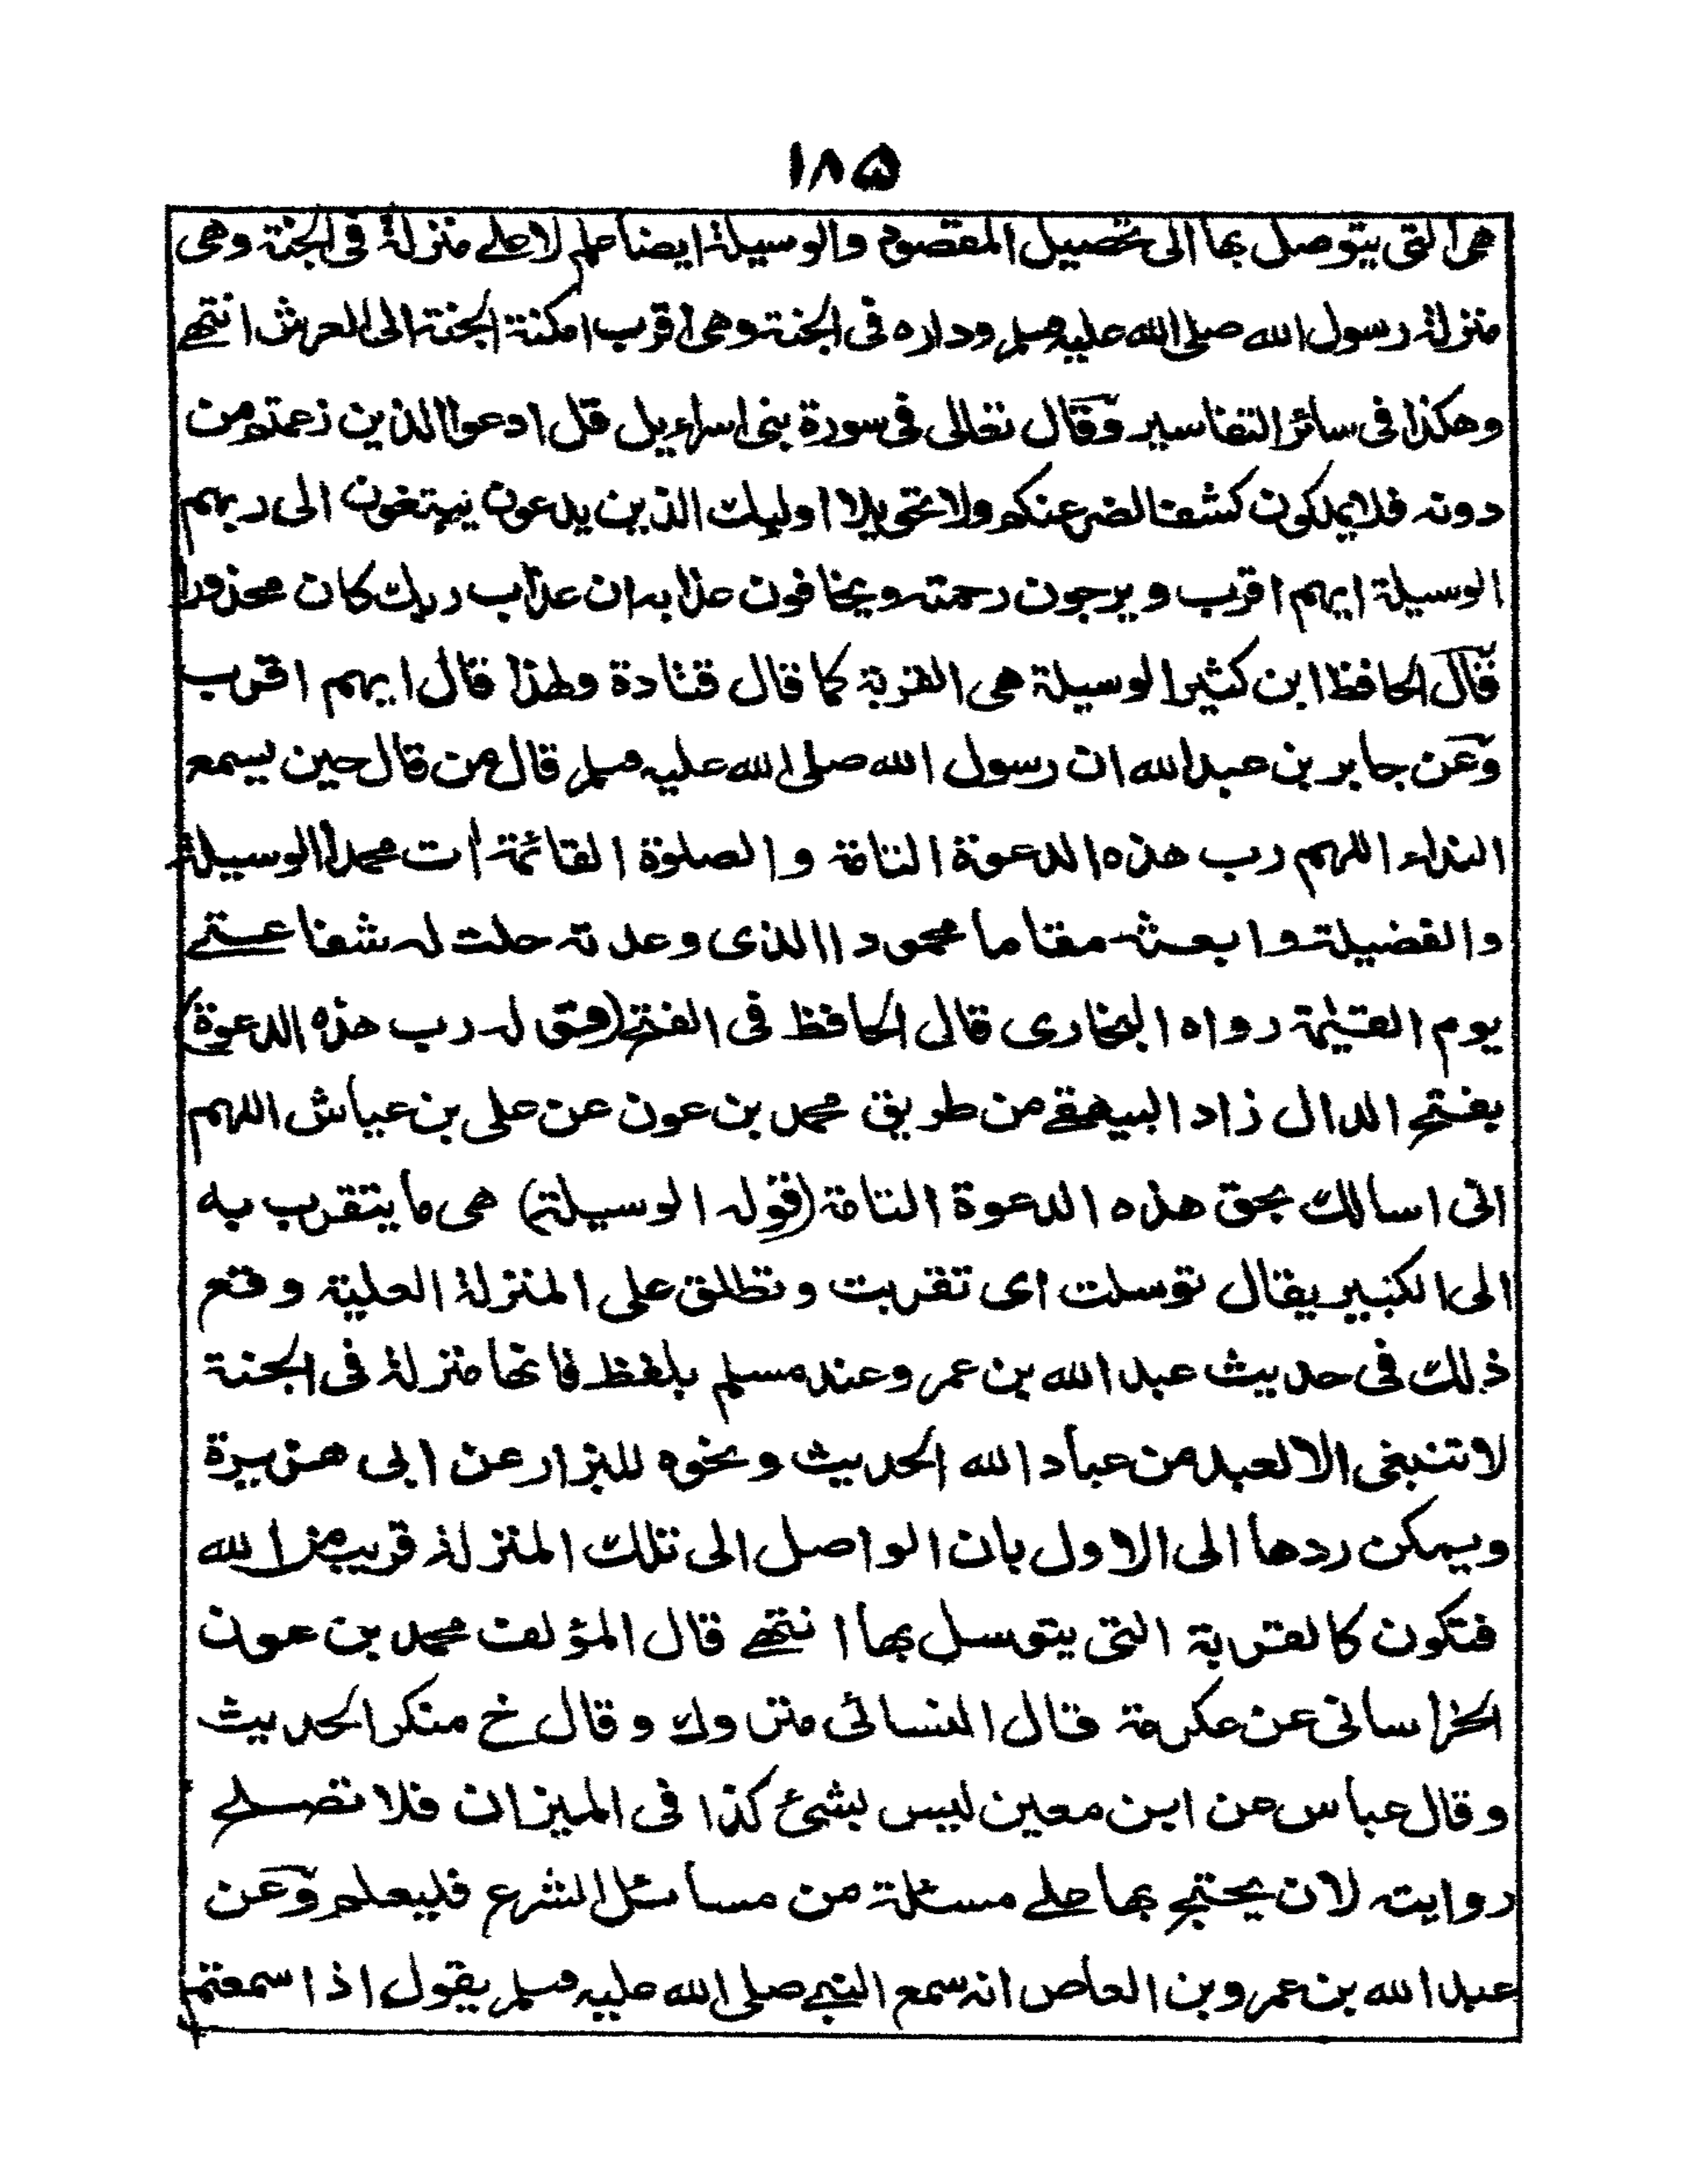 ١٨٥
هى التى يتوصل بها الى تحصيل المقصود والوسيلة ايضا علم لاعلے منزلة فى الجنة وهى
منزلة رسول الله صلى الله عليه وسلم وداره فى الجنة وهى اقرب امكنة الجنة الى العرش انتهے
وهكذا فى سائر التفاسير وقال تعالى فى سورة بنى اسراءيل قل ادعوا الذين زعمتم من
دونه فلا يملكون كشف الضر عنكم ولا تحويلا اوليك الذين يدعون يبتغون الى ربهم
الوسيلة ايهم اقرب ويرجون رحمته ويخافون عذابه ان عذاب ربك كان محذورا
قال الحافظ ابن كثير الوسيلة هى القربة كما قال قتادة ولهذا قال ايهم اقرب
وعن جابر بن عبد الله ان رسول الله صلى الله عليه وسلم قال من قال حين يسمع
النداء اللهم رب هذه الدعوة التامة والصلوة القائمة ات محمدا الوسيلة
والفضيلة وابعثه مقاما محمودا الذى وعدته حلت له شفاعتے
يوم القيٰمة رواه البخارى قال الحافظ فى الفتح (قوله رب هذه الدعوة)
بفتح الدال زاد البيهقے من طريق محمد بن عون عن على بن عياش اللهم
انى اسالك بحق هذه الدعوة التامة (قوله الوسيلة) هى ما يتقرب به
الى الكبير يقال توسلت اى تقربت وتطلق على المنزلة العلية وقع
ذلك فى حديث عبد الله بن عمر وعند مسلم بلفظ فانها منزلة فى الجنة
لا تنبغى الا لعبد من عباد الله الحديث ونحوه للبزار عن ابى هريرة
ويمكن ردها الى الاول بان الواصل الى تلك المنزلة قريب من الله
فتكون كالقربة التى يتوسل بها انتهے قال المؤلف محمد بن عون
الخراسانى عن عكرمة قال النسائى متروك وقال خ منكر الحديث
وقال عباس عن ابن معين ليس بشئ كذا فى الميزان فلا تصلح
روايته لان يحتج بها علے مسئلة من مسائل الشرع فليعلم وعن
عبد الله بن عمرو بن العاص انه سمع النبے صلى الله عليه وسلم يقول اذا سمعتم